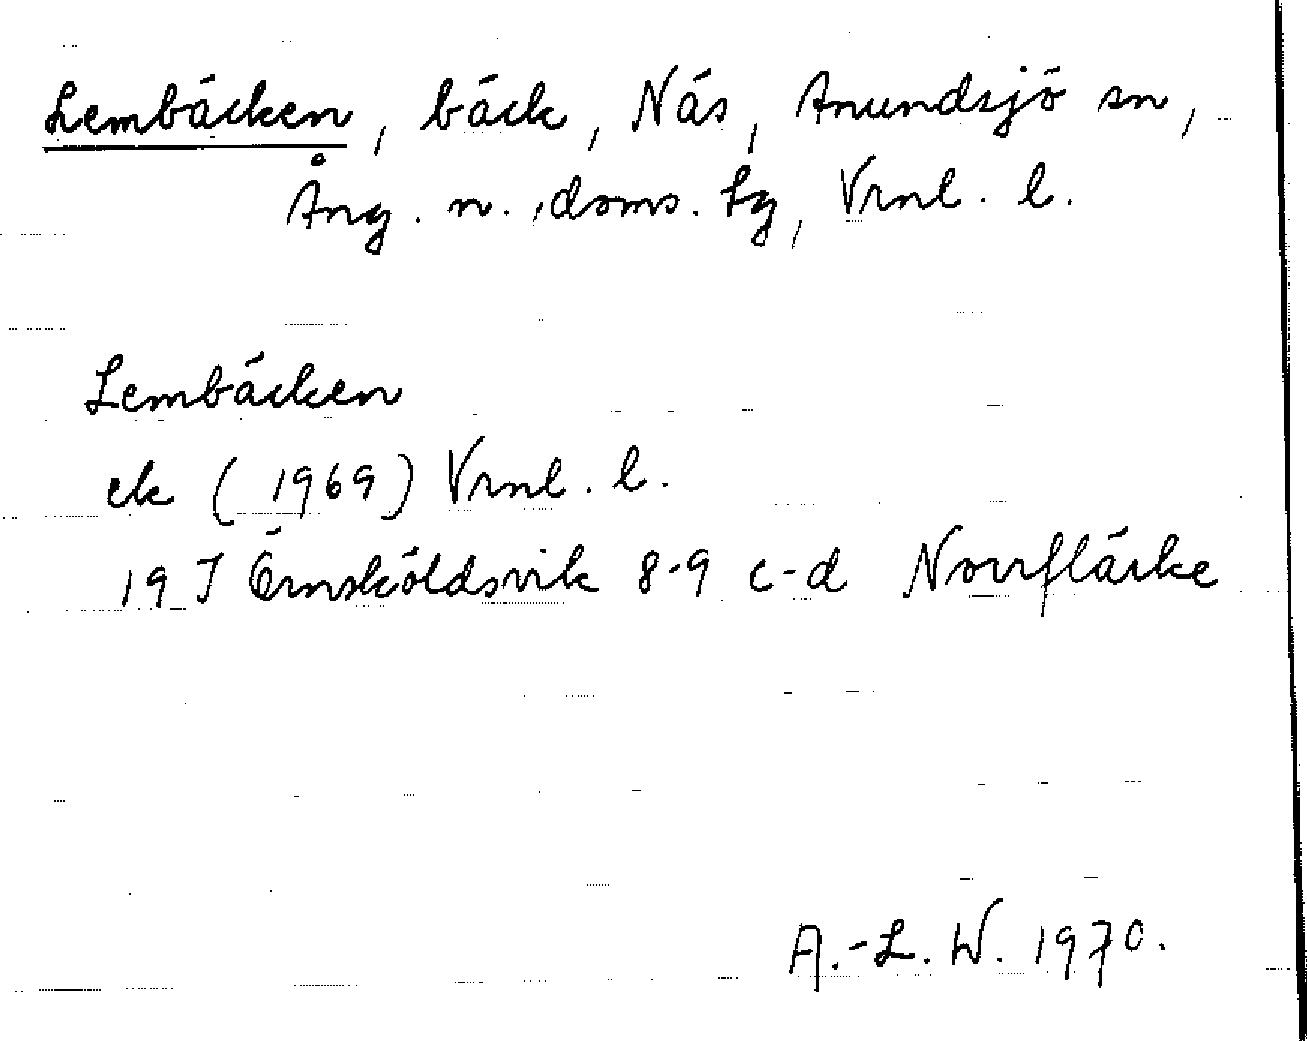 Lembäcken, bäck, Näs, Anundsjö sn,
Ång. n. doms. Lg, Vrnl. l.
Lembäcken
ek (1969) Vrnl. l.
19 J Örnsköldsvik 8-9 c-d Norrflärke
A.-L. W. 1970.